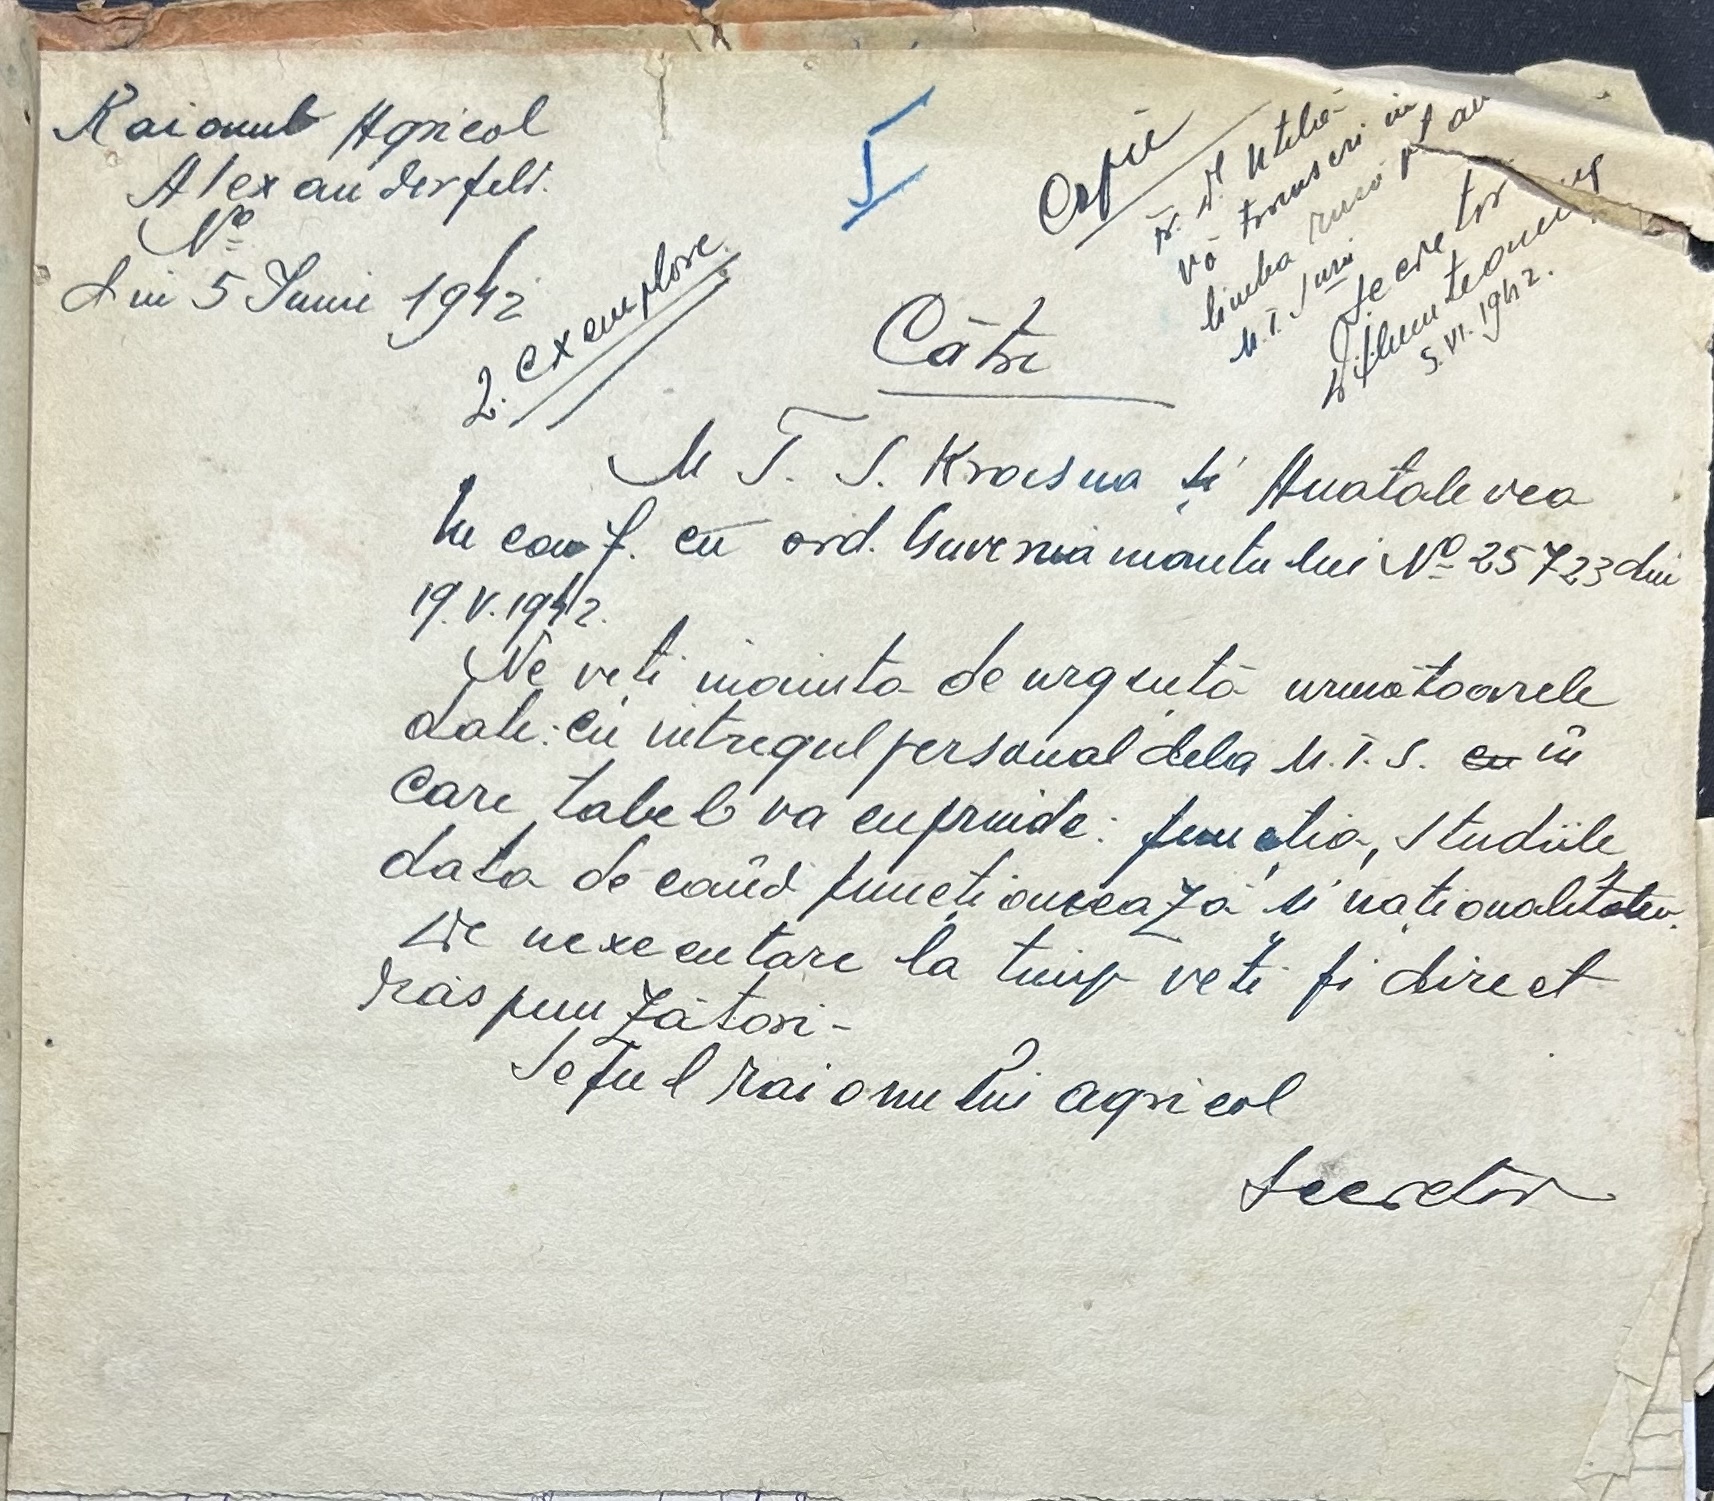 Raionul Agricol
Alexanderfeld.
Nº
din 5 Iunie 1942
2. exemplare
I
Copie
vă transcri in
limba rusă pt.
M.T.S
Secretar
5.VI.1942.
Către
M T. S. Krasna și Anatalevca
In conf. cu ord. Guvernamantului Nº 25723 din
19.V.1942.
Ne veți mainta de urgență urmatoarele
date: cu intregul personal dela M.T.S. cu în
care tabel va cuprinde: funcția, studiile,
data de când funcționează și naționalitatea.
De nexecutare la timp veți fi direct
răspunzători -
Șeful raionului agricol
Secretar